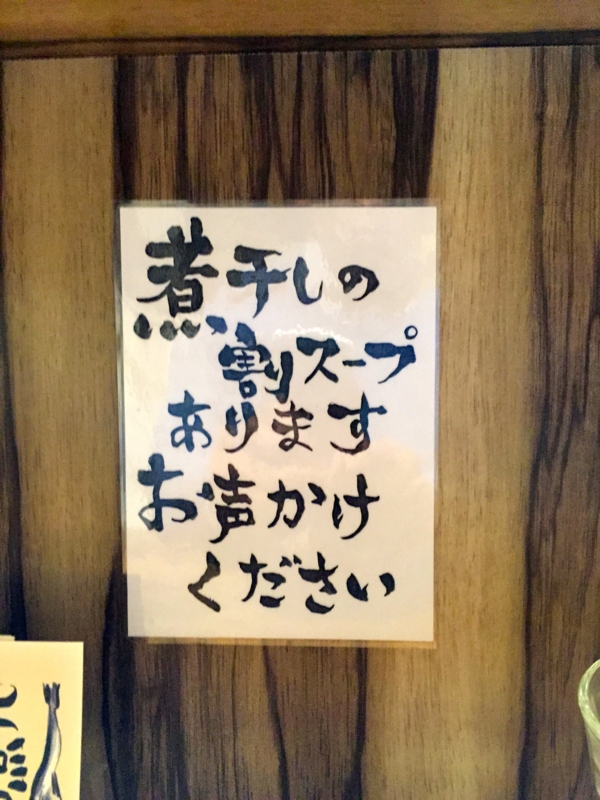 煮干しの
割スープ
あります
お声かけ
ください